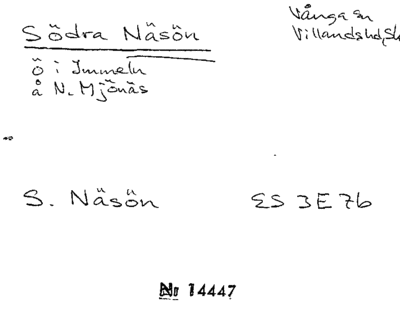 Södra Näsön
Vånga sn
Villandshd, Sk
ö i Immeln
å N. Mjönäs
S. Näsön
ES 3E 7b
Nr 14447